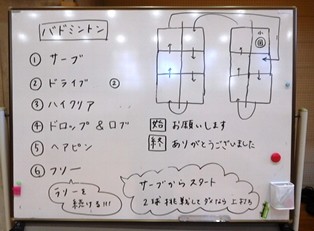 バドミントン
① サーブ
② ドライブ ②
③ ハイクリア
④ ドロップ & ロブ
⑤ ヘアピン
⑥ フリー
始 お願いします
終 ありがとうございました
ラリーを
続ける!!!
サーブからスタート
2球挑戦してダメなら上がろ